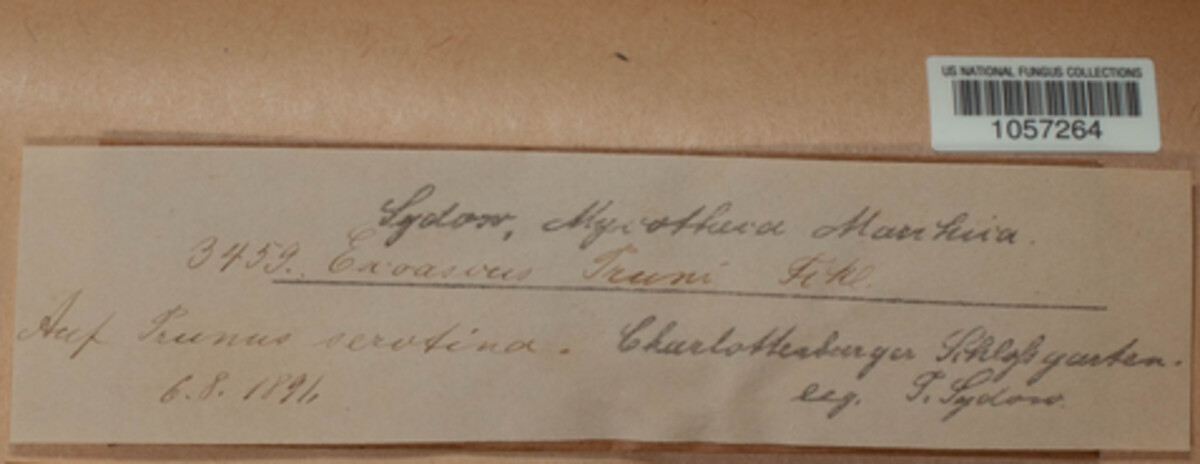 US NATIONAL FUNGUS COLLECTIONS
1057264
Sydow, Mycotheca Marchica.
3459. Exoascus Pruni Fckl.
Auf Prunus serotina. Charlottenburger Schloßgarten.
6.8. 1891, leg. P. Sydow.